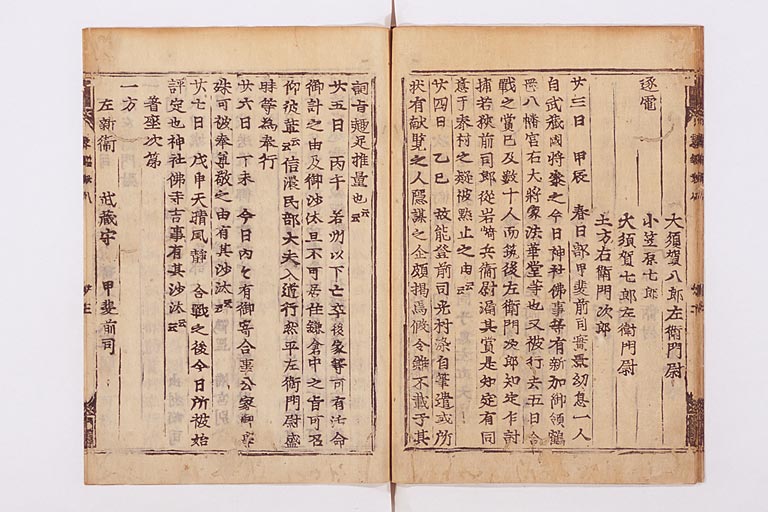 大須賀八郎左衛門尉
逐電
小笠原七郎
大須賀七郎左衛門尉
土方右衛門次郎
廿三日 甲辰 春日部甲斐前司實景幼息一人
自武藏國將參之今日神社佛事等有新加御領鶴
岳八幡宮右大將家法華堂等也又被行去五日合
戰之賞已及數十人而筑後左衛門次郎知定乍討
捕若狹前司郎從岩崎兵衛尉漏其賞是知定有同
意于泰村之疑被黙止之由云云
廿四日 乙巳 故能登前司光村染自筆遣或所
狀有献覽之人隱謀之企頗掲焉假令雖不載于其
詞旨趣足推量也云云
廿五日 丙午 若州以下亡卒後家等可有活命
御計之由及御沙汰且不可居住鎌倉中之旨可召
仰彼輩云云信濃民部大夫入道行然平左衛門尉盛
時等為奉行
廿六日 丁未 今日內々有御寄合事公家御事
殊可被奉尊敬之由有其沙汰云云
廿七日 戊申 天晴風靜 合戰之後今日所被始
評定也神社佛寺吉事有其沙汰云云
着座次第
一方
左親衛 武藏守 甲斐前司